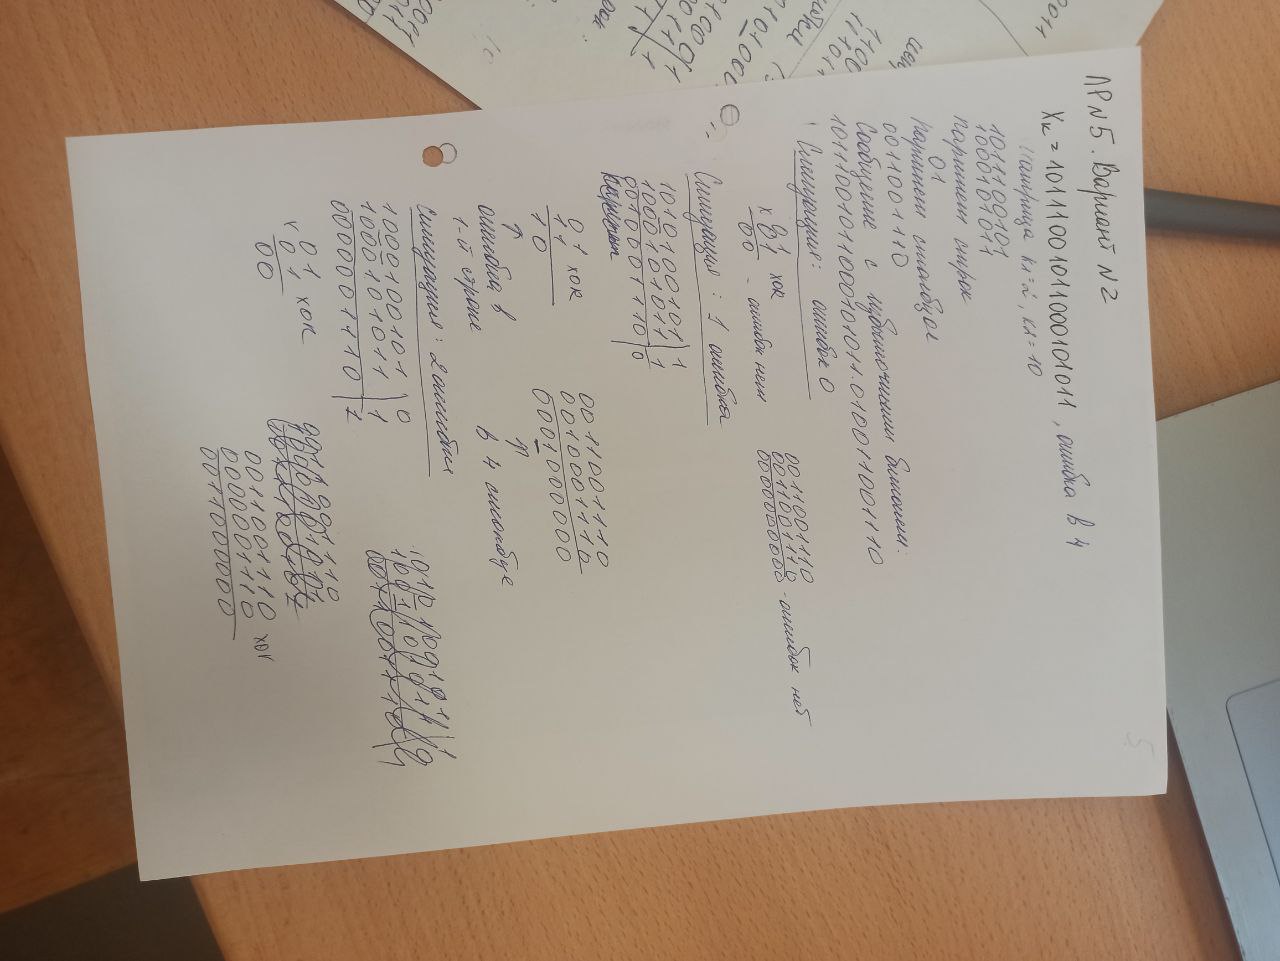 5
ЛР№5. Вариант №2
Xк = 10111001011000101011, ошибка в 4
матрица k1=2, k2=10
1011100101
1000101011
паритет строк
01
паритет столбцов
0011001110
Сообщение с избыточными битами:
10111001011000101011.010011001110
Ситуация: ошибок 0
x 01 xor
01
00 - ошибок нет
0011001110
0011001110
0000000000 - ошибок нет
Ситуация: 1 ошибка
1010100101 | 1
1000101011 | 1
0010001110 | 0
01 xor
11
10
↑
ошибка в
1-й строке
0011001110
0010001110
0001000000
↑
в 4 столбце
Ситуация: 2 ошибки
1000100101 | 0
1000101011 | 1
0000001110 | 1
x 01 xor
01
00
0011001110
0011001110 xor
0000001110
0011000000
0011
011
1100
11101
01000